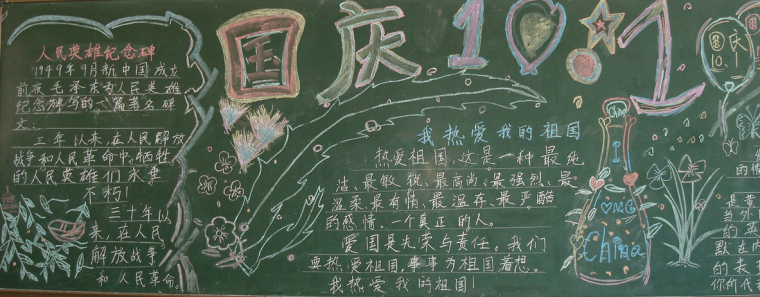 国庆10·1
人民英雄纪念碑
1949年9月新中国成立
前夜毛泽东为人民英雄
纪念碑写的一篇著名碑
文.
三年以来,在人民解放
战争和人民革命中牺牲
的人民英雄们永垂
不朽!
三十年以
来,在人民
解放战争
和人民革命
我热爱我的祖国
热爱祖国,这是一种最纯
洁、最敏锐、最高尚、最强烈、最
温柔、最有情、最温存、最严酷
的感情。一个真正的人。
爱国是光荣与责任。我们
要热爱祖国,事事为祖国着想。
我热爱我的祖国!
China
I
LOVE
China
国庆
10.
是黄
当外
的英
默在
的表
你所代